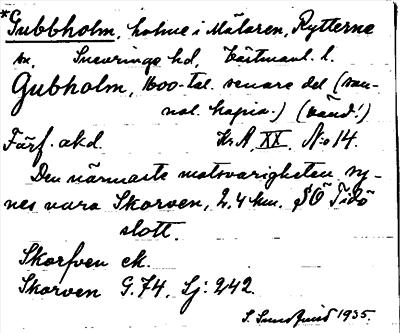 *Gubbholm, holme i Mälaren, Rytterne
sn, Snevringe hd, Västmanl. l.
Gubholm, 1600-tal. senare del (san-
nol. kopia.) (bänd.)
Förf. akd. K. A. XX. N:o 14.
Den närmaste motsvarigheten sy-
nes vara Skorven, 2,4 km. SÖ Tidö
slott.
Skorfven ek.
Skorven G.74. Sj: 242.
S. Sundquist 1935.